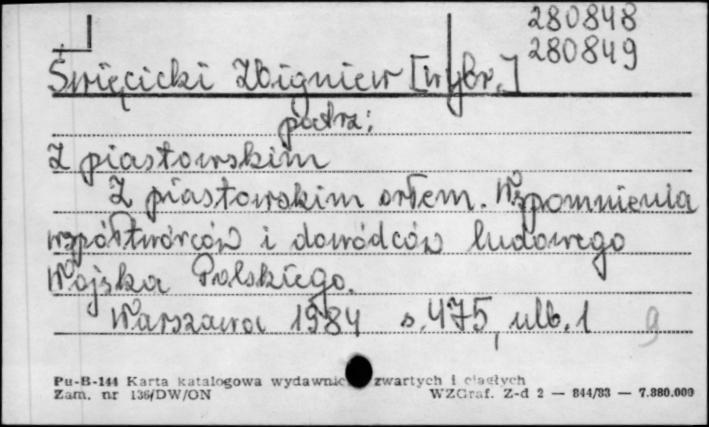 280848
280849
Święcicki Zbigniew [wybr.]
patrz:
Z piastowskim
Z piastowskim orłem. Wspomnienia
współtwórców i dowódców ludowego
Wojska Polskiego.
Warszawa 1984 s. 475, nlb. 1 9
Pu-B-144 Karta katalogowa wydawnic zwartych i ciągłych
Zam. nr 136/DW/ON WZGraf. Z-d 2 — 844/83 — 7.880.000